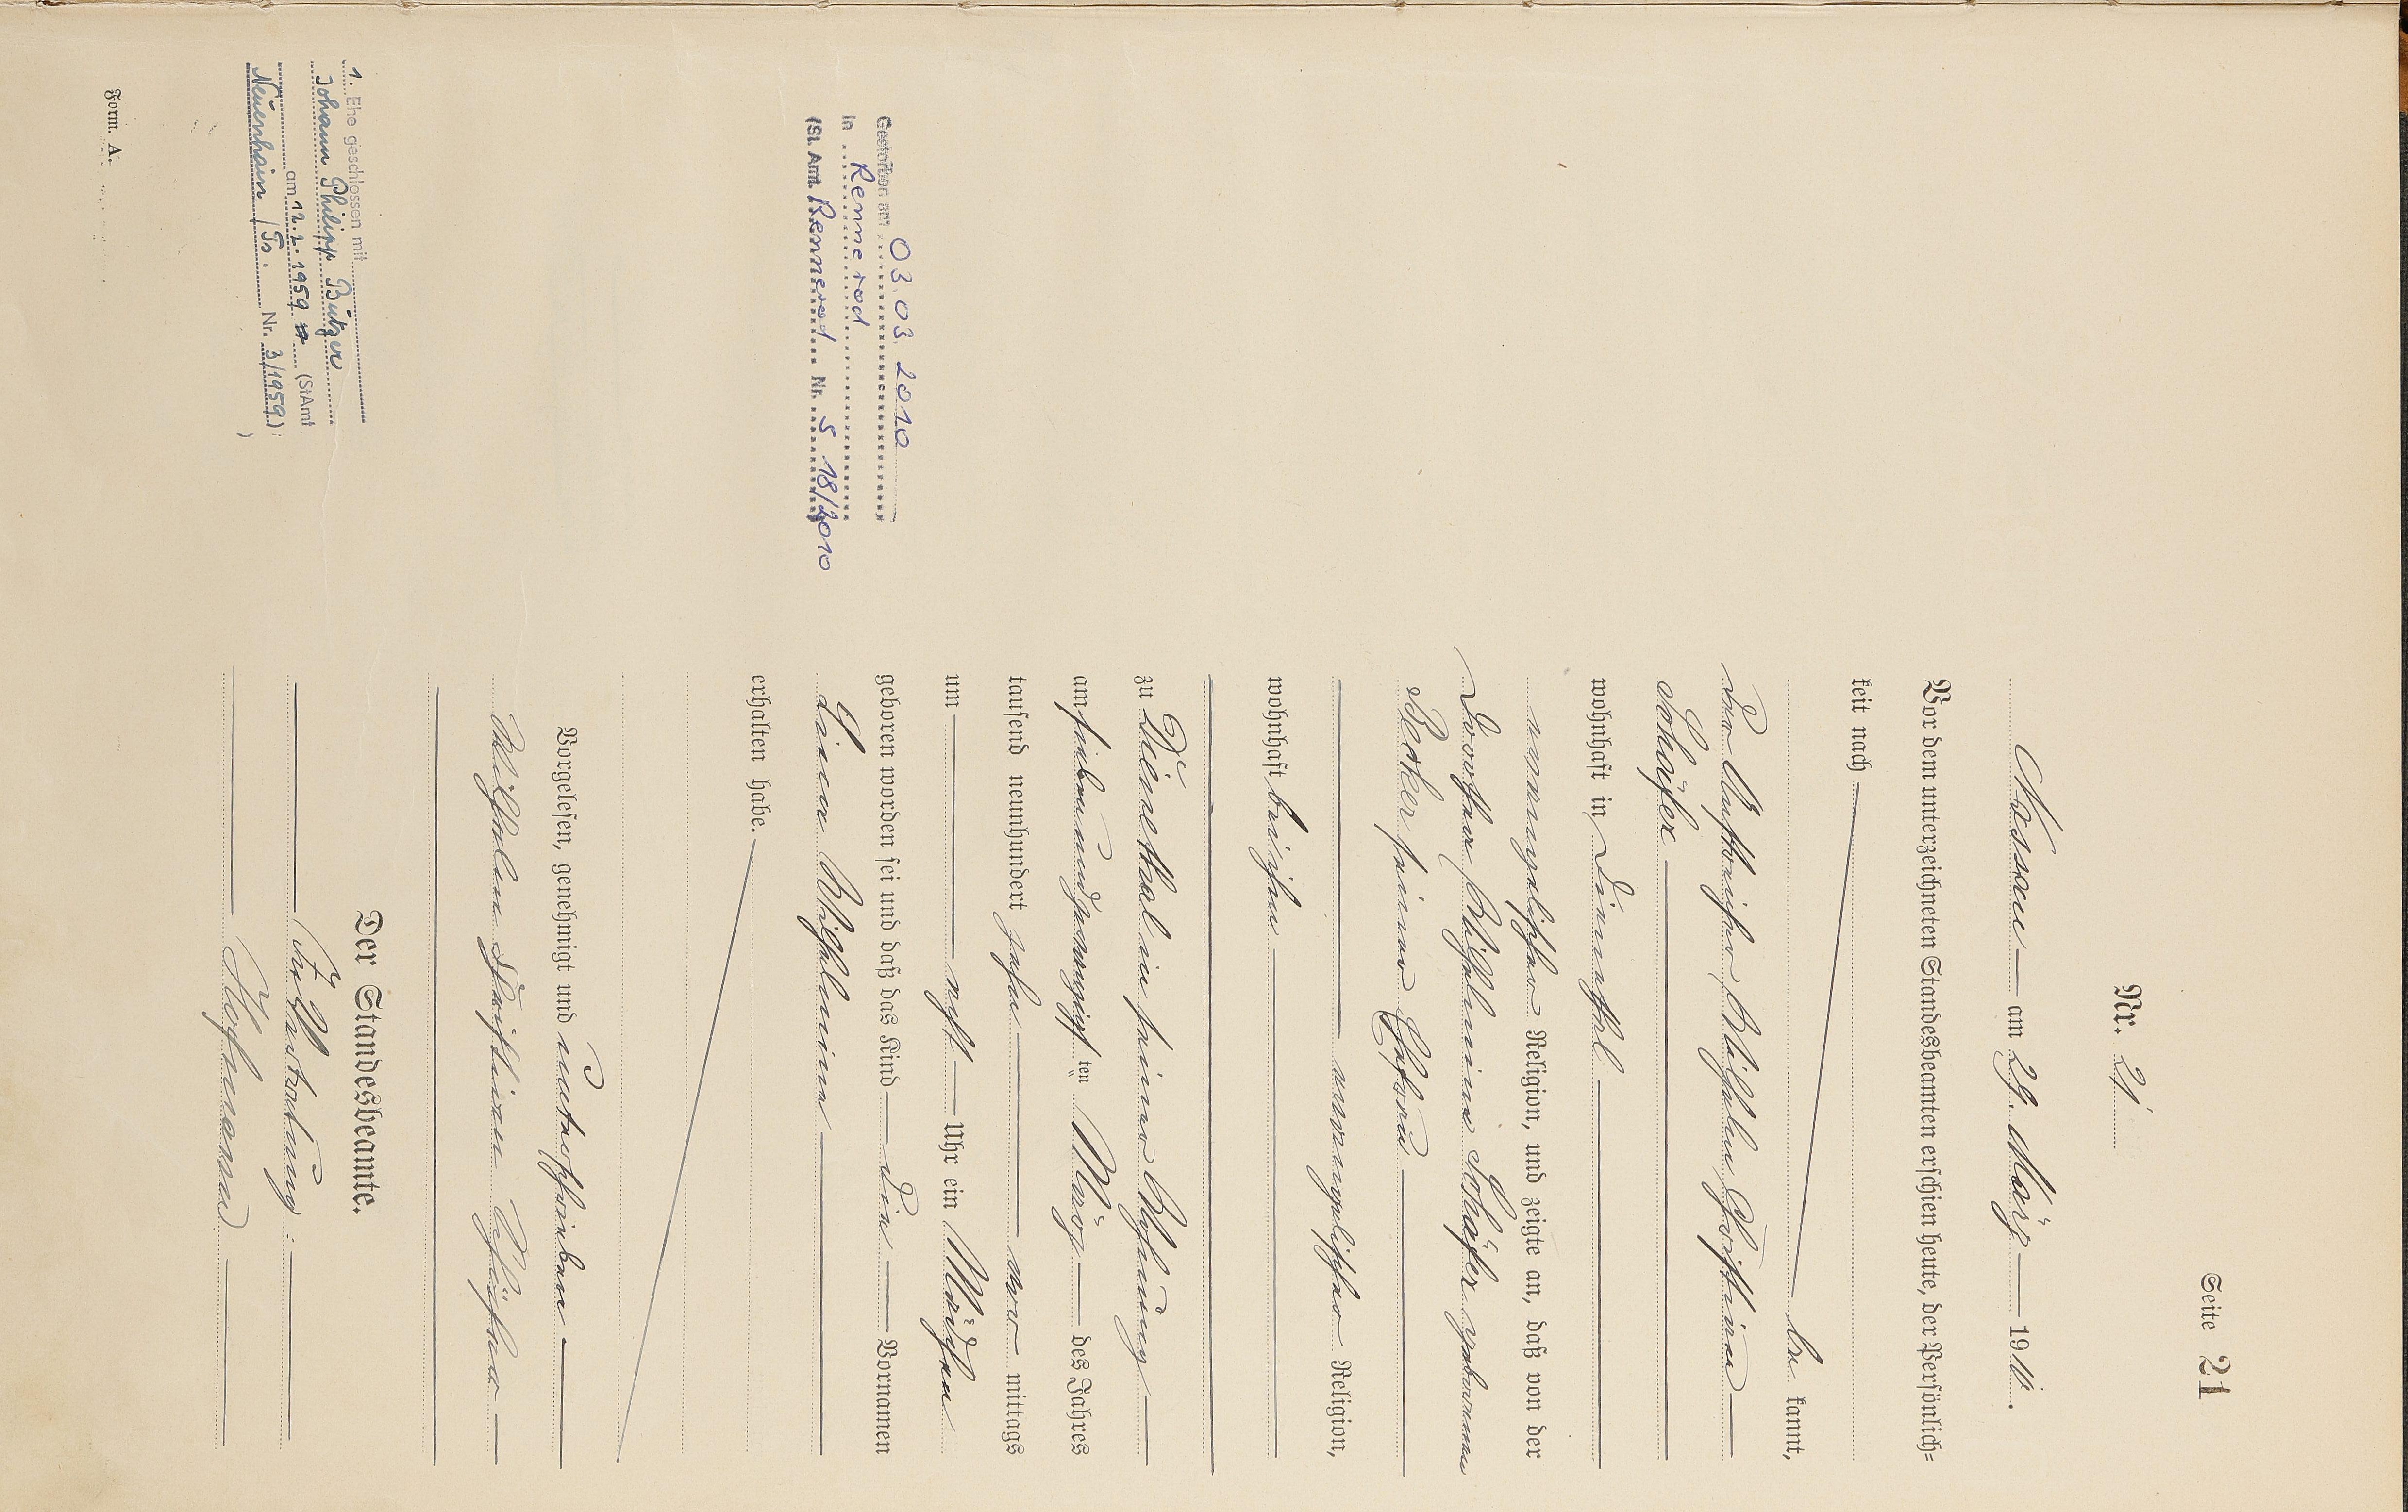 Seite 21
Nr. 21
Nassau am 29. März 1910.
Vor dem unterzeichneten Standesbeamten erschien heute, der Persönlich=
keit nach
be kannt,
der Wilhelm Christian
Schäfer
wohnhaft in Dienethal
evangelischer Religion, und zeigte an, daß von der
Wilhelmine Schäfer geborenen
Becker seiner Ehefrau
evangelischer Religion,
wohnhaft bei ihm
zu Dienethal in seiner Wohnung
am siebenundzwanzigsten März des Jahres
tausend neunhundert zehn vor mittags
um acht Uhr ein Mädchen
geboren worden sei und daß das Kind die Vornamen
Lina Wilhelmine
erhalten habe.
Vorgelesen, genehmigt und unterschrieben
Wilhelm Christian Schäfer
Der Standesbeamte.
In Vertretung:
Hofmann
Gestorben am 03.03.2010
in Rennerod
(St. Amt. Rennerod Nr. S 18/2010
1. Ehe geschlossen mit
Johann Philipp Butzer
am 12.2.1959 (StAmt
Neuenhain/Ts. Nr. 3/1959)
Form. A.